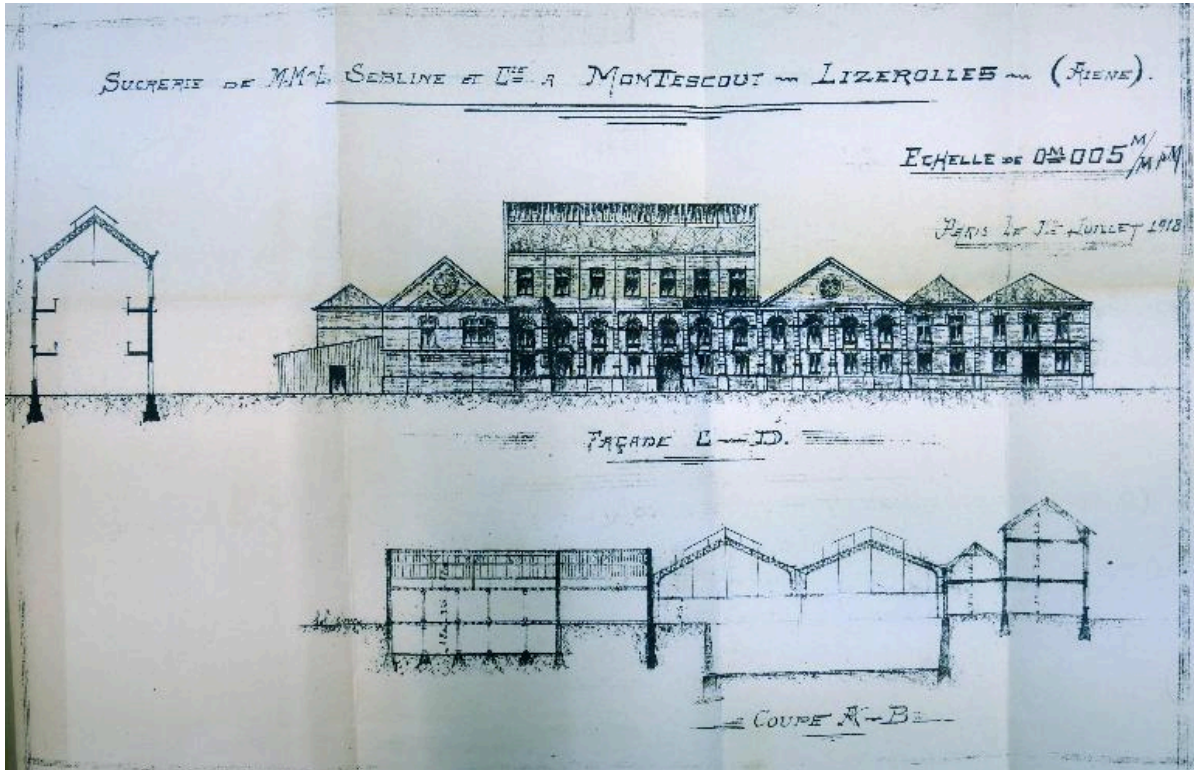 SUCRERIE DE M.M. L. SEBLINE ET Cie A MONTESCOUT — LIZEROLLES — (AISNE).
ECHELLE DE 0M005 M/M P M
PARIS LE 1er JUILLET 1918
FAÇADE C — D.
COUPE A — B